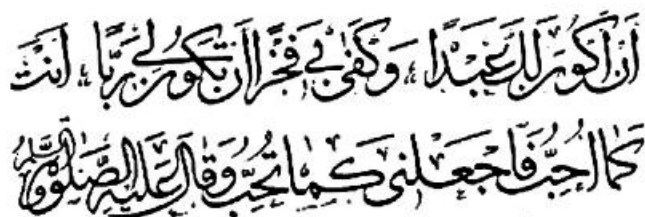 أَنْ أَكُونَ لَكَ عَبْدًا ، وَكَفٰى بِي فَخْرًا أَنْ تَكُونَ لِي رَبًّا ، أَنْتَ
كَمَا أُحِبُّ فَاجْعَلْنِي كَمَا تُحِبُّ وَقَالَ عَلَيْهِ الصَّلٰوةُ وَالسَّلَامُ